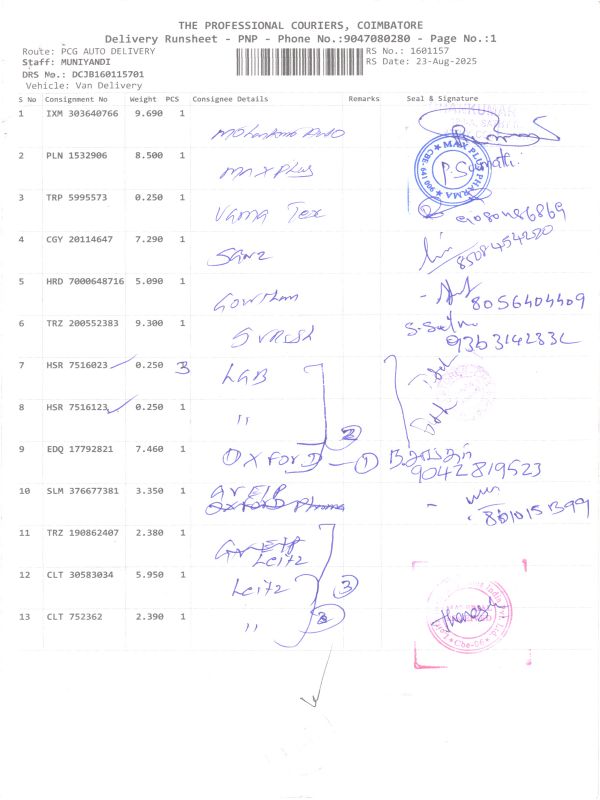 THE PROFESSIONAL COURIERS, COIMBATORE
Delivery Runsheet - PNP - Phone No.:9047080280 - Page No.:1
Route: PCG AUTO DELIVERY RS No.: 1601157
Staff: MUNIYANDI RS Date: 23-Aug-2025
DRS No.: DCJB160115701
Vehicle: Van Delivery
S No Consignment No Weight PCS Consignee Details Remarks Seal & Signature
1 IXM 303640766 9.690 1
2 PLN 1532906 8.500 1 MAXPLUS MAX PLUS PHARMA CBE-641 001 P. Sumathi
3 TRP 5995573 0.250 1 Vama Tex 9080486869
4 CGY 20114647 7.290 1 SANZ 8508454220
5 HRD 7000648716 5.090 1 Gowtham 8056404409
6 TRZ 200552383 9.300 1 SURESH
7 HSR 7516023 0.250 1 LGB
8 HSR 7516123 0.250 1 " 2
9 EDQ 17792821 7.460 1 OXFORD - 1 9042819523
10 SLM 376677381 3.350 1 Oxford Pharma
11 TRZ 190862407 2.380 1 Leitz
12 CLT 30583034 5.950 1 Leitz 3
13 CLT 752362 2.390 1 "